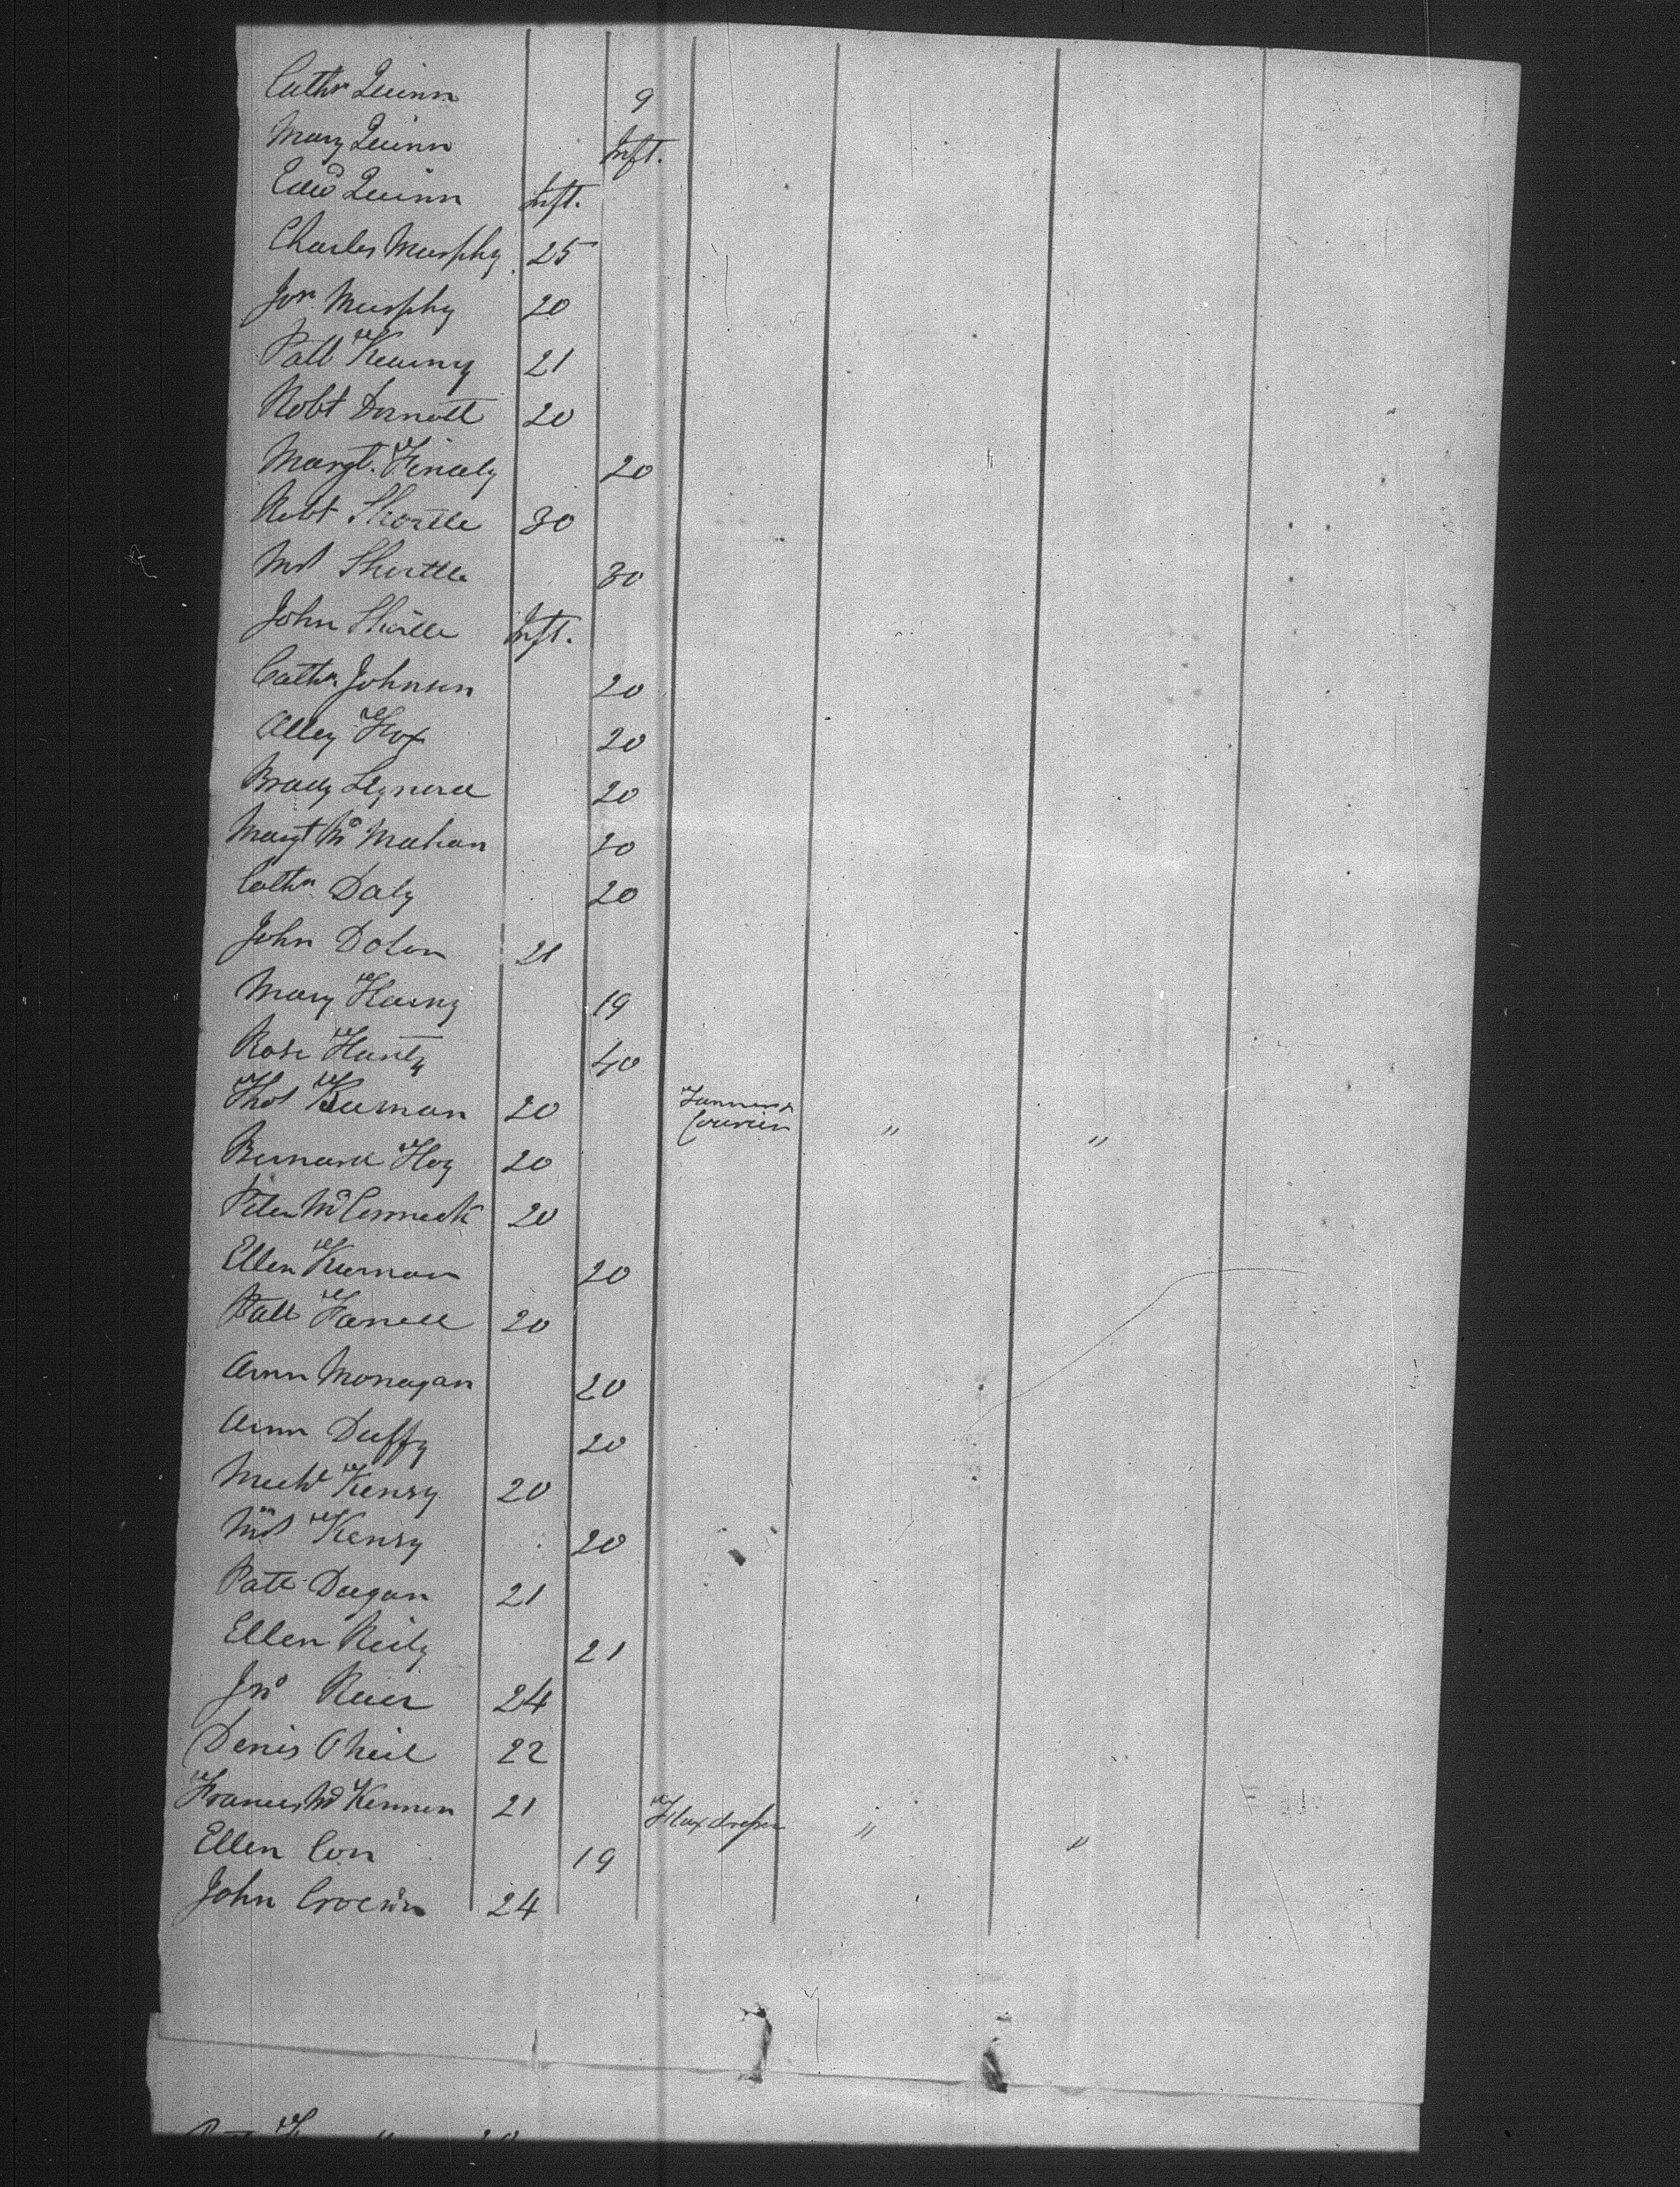 Cathn Quinn 9
Mary Quinn Inft.
Edwd Quinn Inft.
Charles Murphy 25
Jon Murphy 20
Patt Kearny 21
Robt Dornott 20
Margt. Finaly 20
Robt Shortle 30
Mrs Shortle 30
John Shortle Inft.
Cathn. Johnson 20
Alley Fox 20
Lynard 20
Margt Mc Mahan 20
Cathn Daly 20
John Dolon 21
Mary 19
Rose 40
Thos Kiernan 20 Tanner & Currier " "
Bernard Hoy 20
Peter McCormack 20
Ellen Kiernan 20
Patt Farrell 20
Ann Monagan 20
Ann Duffy 20
Michl Kenry 20
Mrs Kenry 20
Patt Dugan 21
Ellen Reily 21
Jno 24
Denis O Neil 22
Frances Mc Kennen 21 Flax dresser " "
Ellen Con 19
John 24